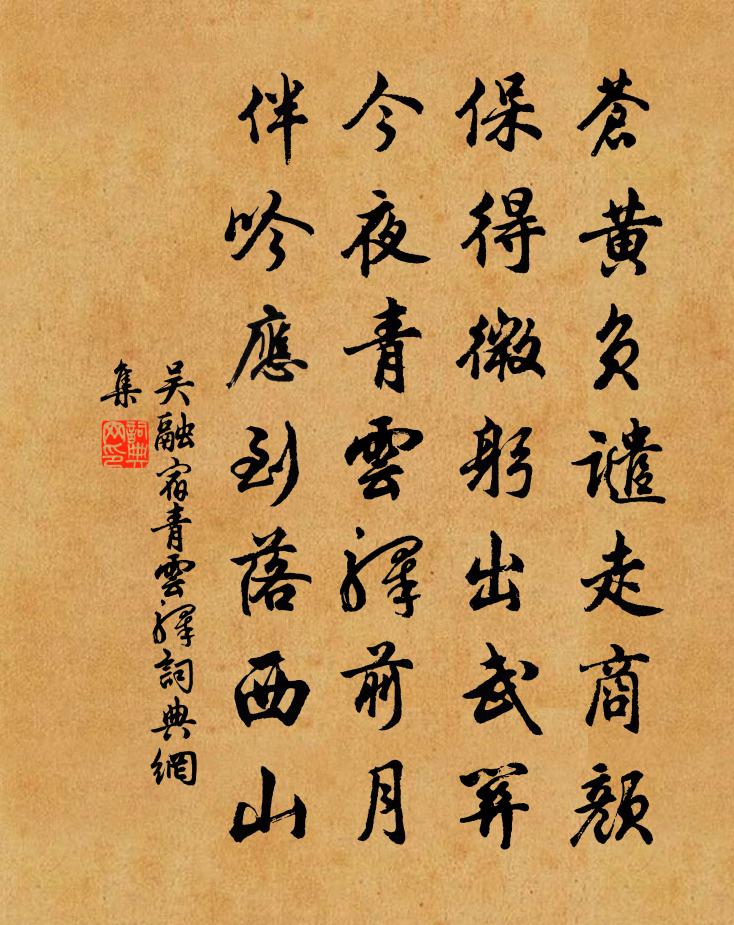 蒼黃負譴走商顏
保得微躬出武關
今夜青雲驛前月
伴吟應到落西山
吴融宿青雲驛詞典網
集
詞典网印